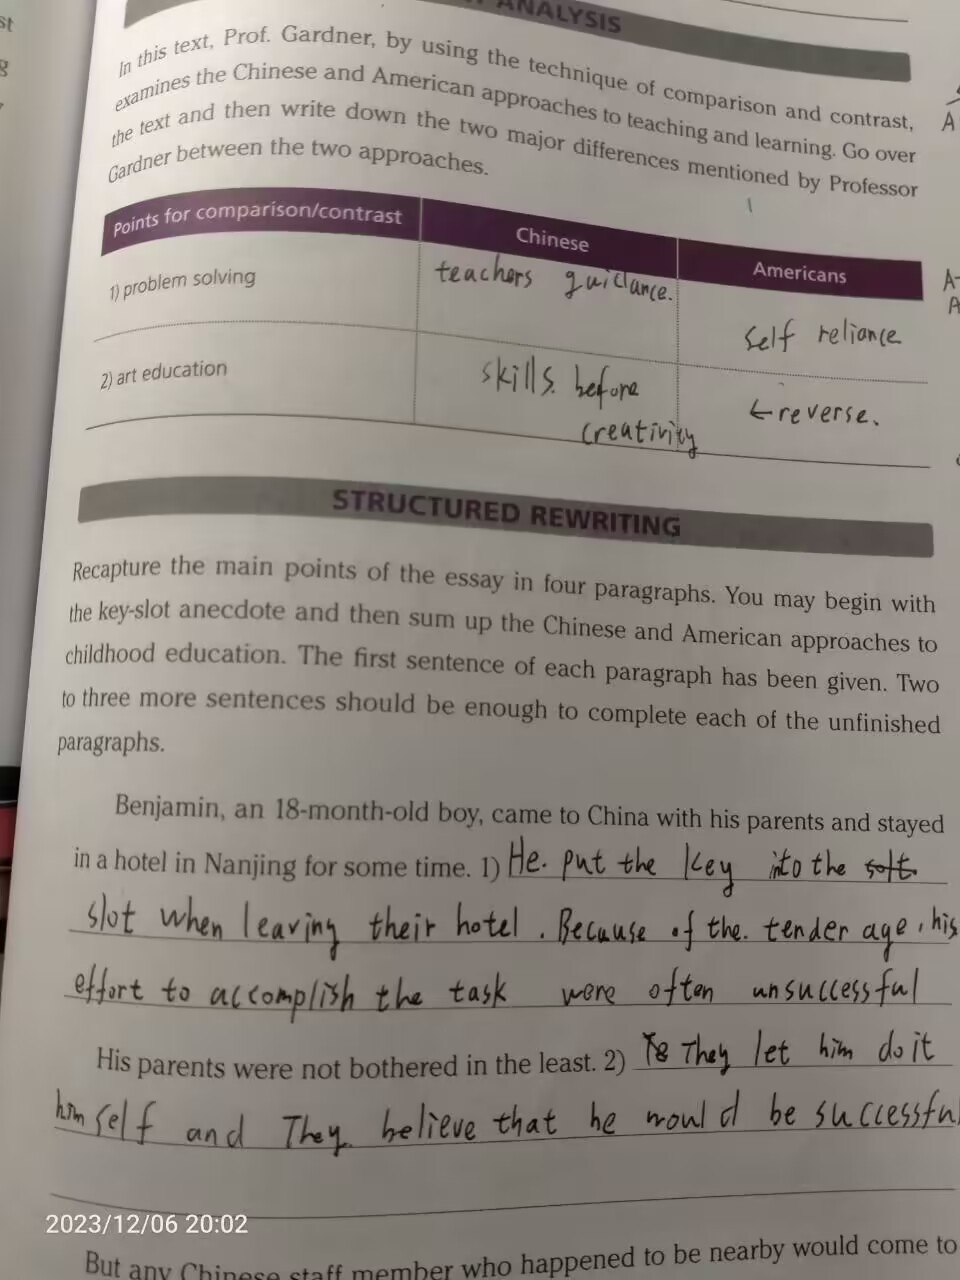 ANALYSIS
In this text, Prof. Gardner, by using the technique of comparison and contrast,
examines the Chinese and American approaches to teaching and learning. Go over
the text and then write down the two major differences mentioned by Professor
Gardner between the two approaches.
Points for comparison/contrast Chinese Americans
1) problem solving teachers guidance. self reliance
2) art education skills. before creativity ← reverse.
STRUCTURED REWRITING
Recapture the main points of the essay in four paragraphs. You may begin with
the key-slot anecdote and then sum up the Chinese and American approaches to
childhood education. The first sentence of each paragraph has been given. Two
to three more sentences should be enough to complete each of the unfinished
paragraphs.
Benjamin, an 18-month-old boy, came to China with his parents and stayed
in a hotel in Nanjing for some time. 1) He. put the key into the
slot when leaving their hotel. Because of the. tender age, his
effort to accomplish the task were often unsuccessful
His parents were not bothered in the least. 2) They let him do it
himself and They believe that he would be successful
2023/12/06 20:02
But any Chinese staff member who happened to be nearby would come to